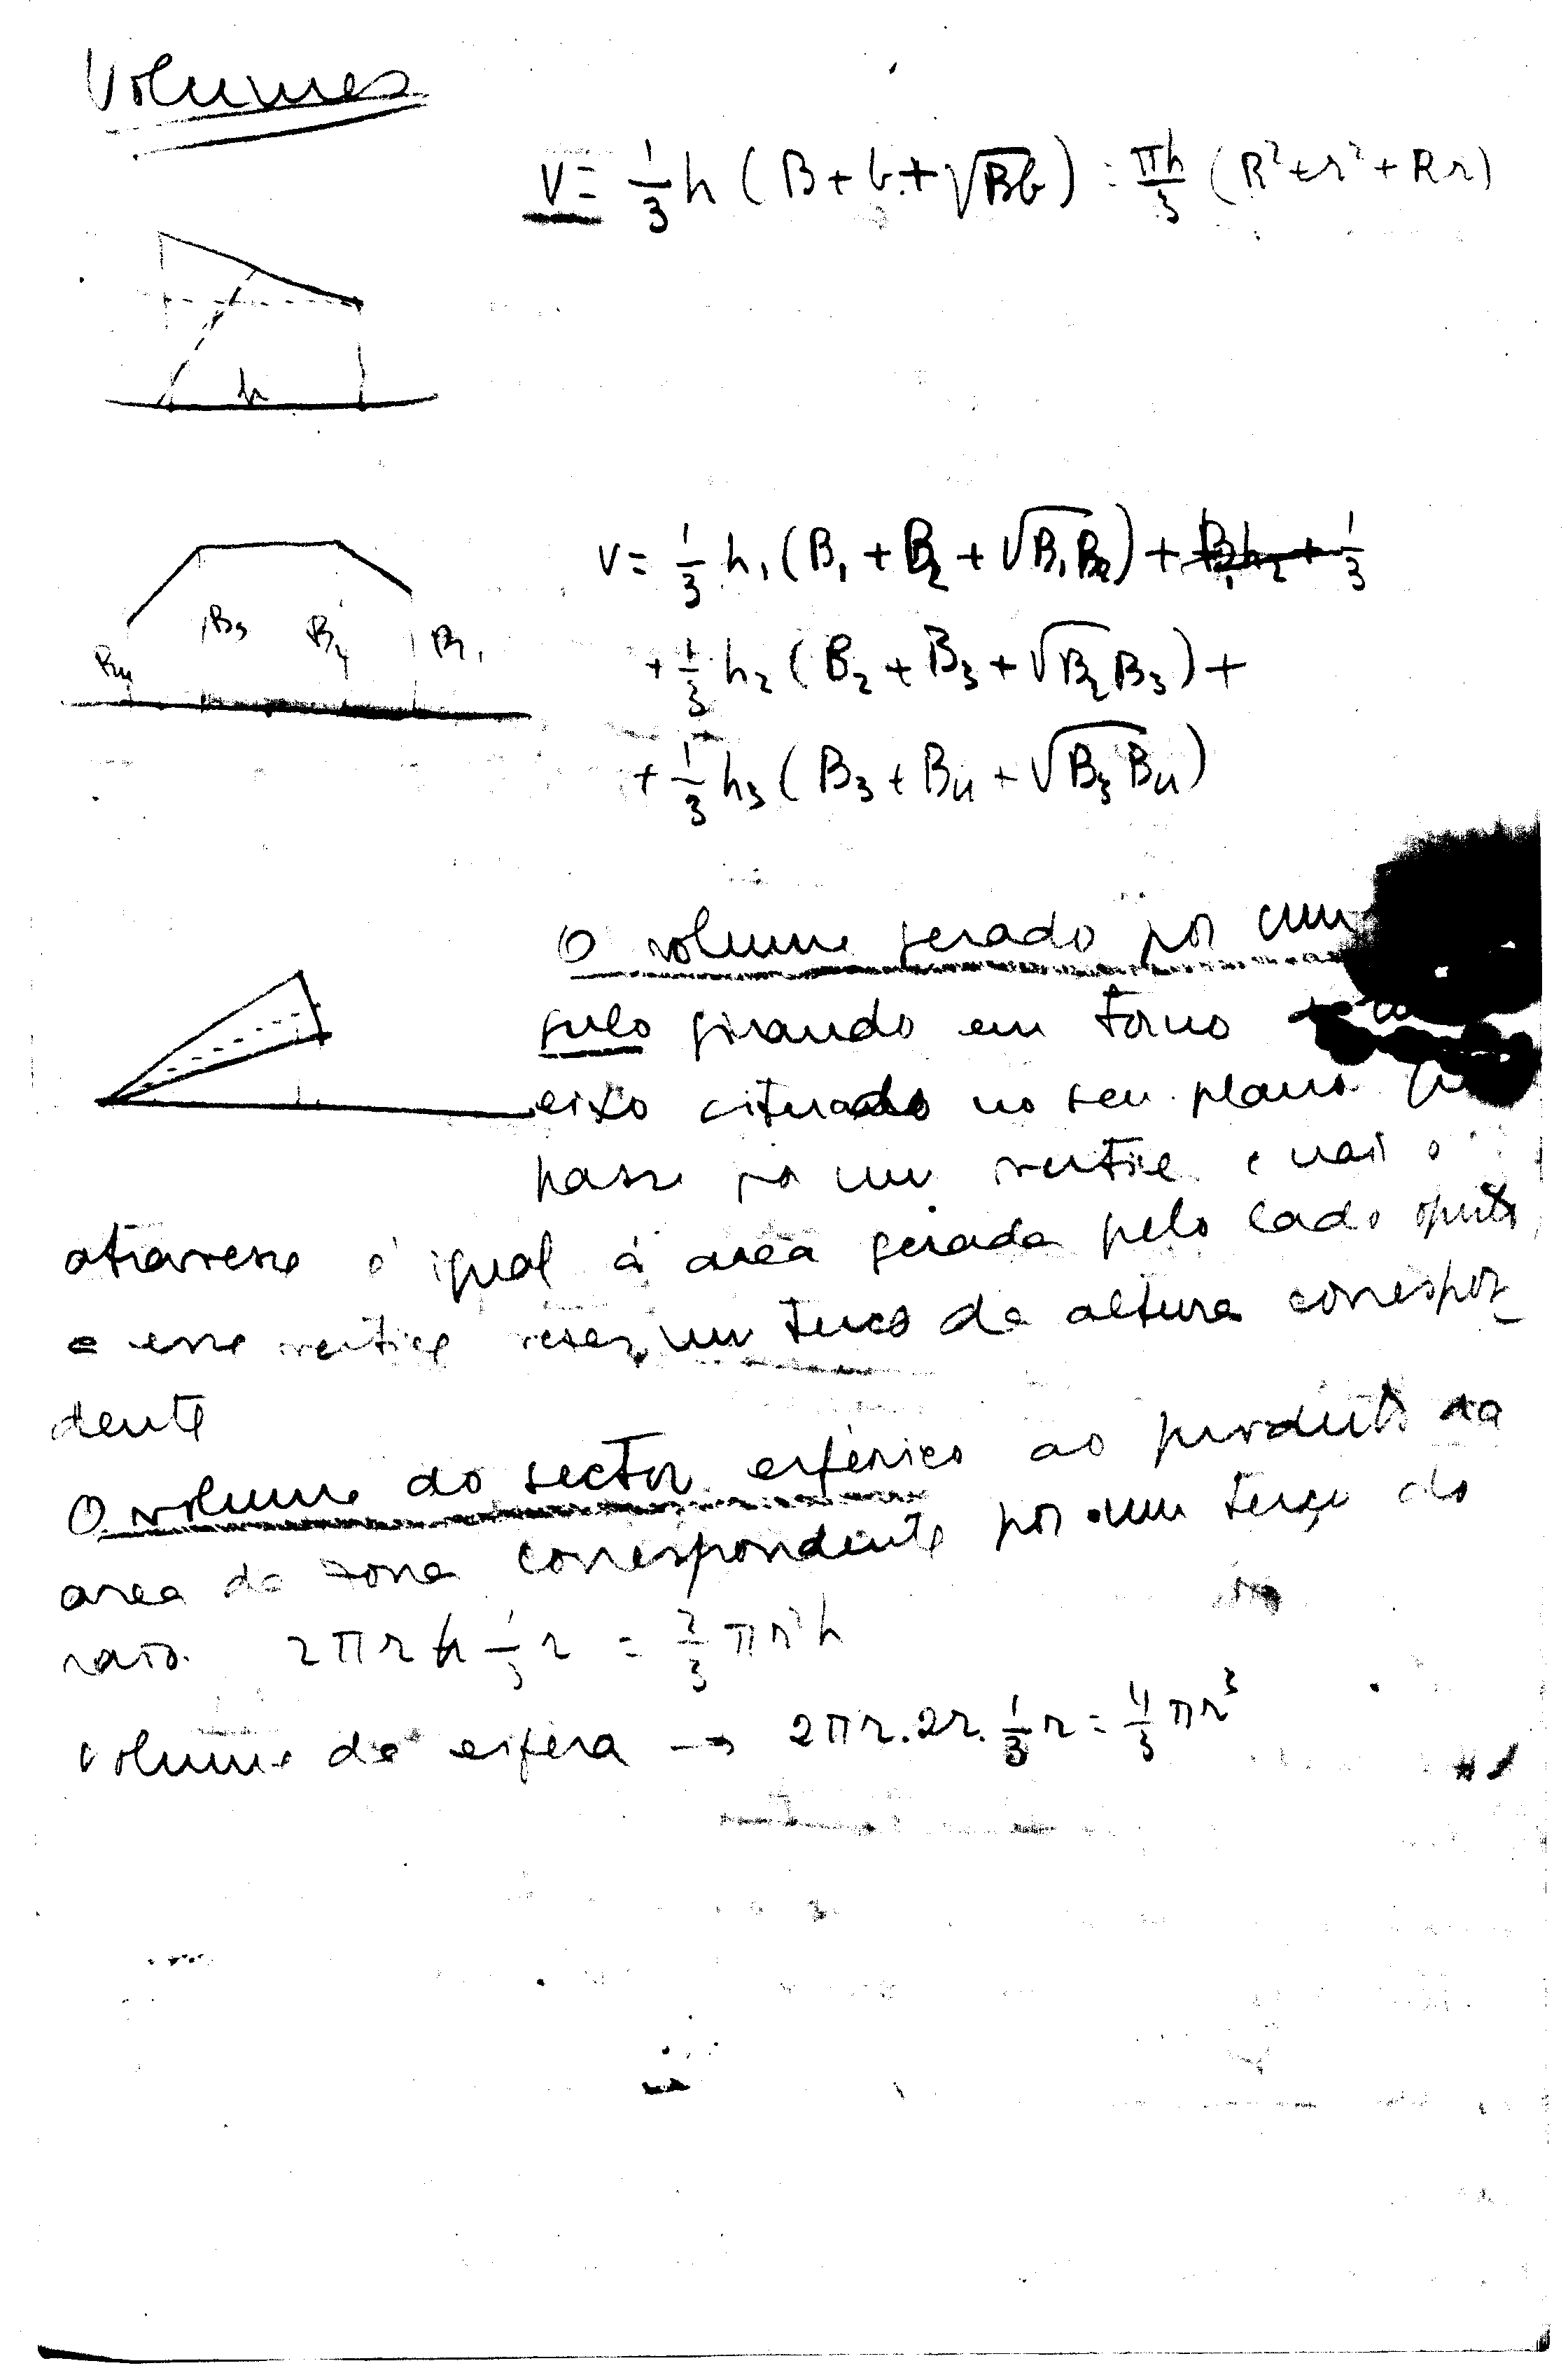 Volumes
V = 1/3 h (B + b + √Bb) = πh/3 (R² + r² + Rr)
h
V = 1/3 h₁ (B₁ + B₂ + √B₁B₂) + B₁h₂ + 1/3
B₄ B₃ B₂ B₁
+ 1/3 h₂ (B₂ + B₃ + √B₂B₃) +
+ 1/3 h₃ (B₃ + B₄ + √B₃B₄)
O volume gerado por um
gulo girando em torno
eixo citurado no seu plano
passe por um vertice e não o
atravesse é igual á area gerada pelo lado oposto
a esse vertice vezes um terço da altura correspon
dente
O volume do sector esférico ao produto da
area da zona correspondente por um terço do
raio. 2πrh 1/3 r = 2/3 πr²h
Volume da esfera → 2πr.2r. 1/3 r = 4/3 πr³